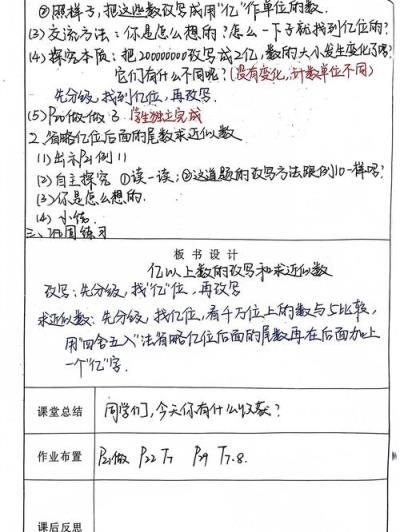 ②照样子,把这些数改写成用"亿"作单位的数.
(3)交流方法:你是怎么想的?怎么一下子就找到亿位的?
(4)探究本质:把200000000改写成2亿,数的大小发生变化了吗?
它们有什么不同呢?(没有变化,计数单位不同)
先分级,找到亿位,再改写.
(5)P20做一做2 学生独立完成
2.省略亿位后面的尾数求近似数
(1)出示P21例11
(2)自主探究 ①读一读;②这道题的改写方法跟例10一样吗?
(3)你是怎么想的.
(4)小结.
三、巩固练习
板书设计
亿以上数的改写和求近似数
改写:先分级,找"亿"位,再改写
求近似数:先分级,找亿位,看千万位上的数与5比较,
用"四舍五入"法省略亿位后面的尾数再在后面加上
一个"亿"字.
课堂总结
同学们,今天你有什么收获?
作业布置
P21做 P22 T7 P29 T7.8.
课后反思